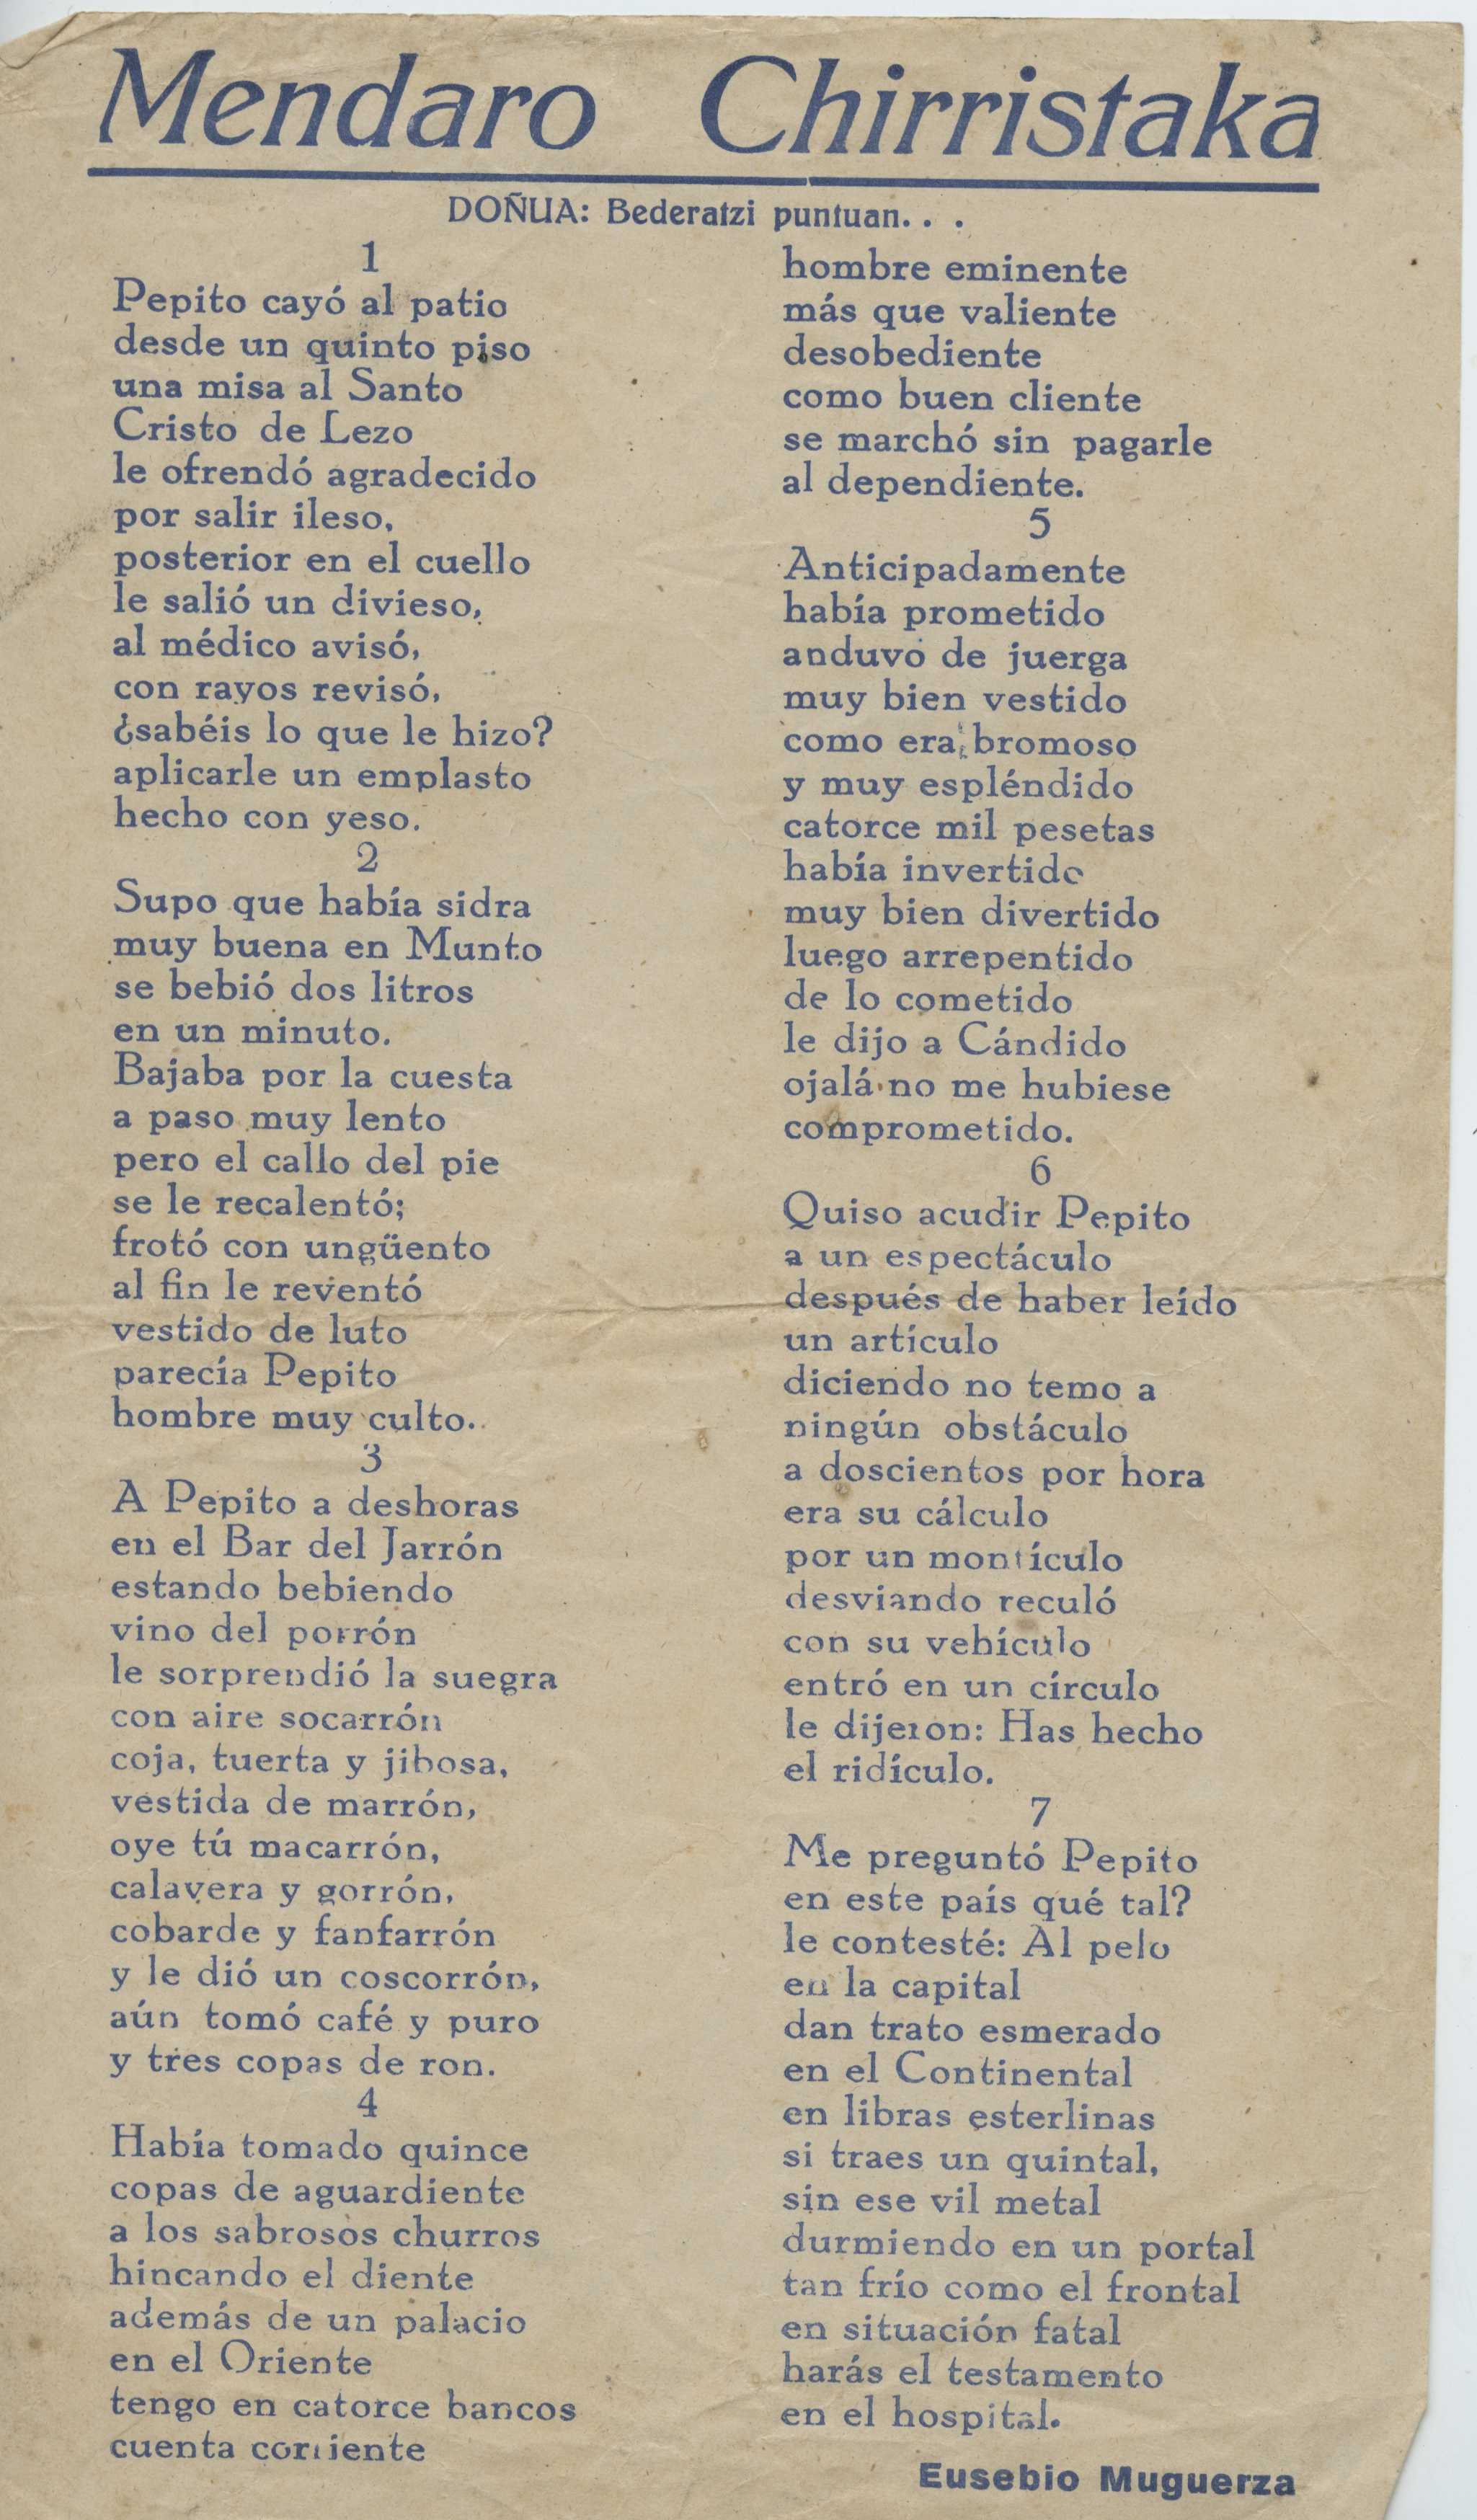 Mendaro Chirristaka
DOÑUA: Bederatzi puntuan. . .
1
Pepito cayó al patio
desde un quinto piso
una misa al Santo
Cristo de Lezo
le ofrendó agradecido
por salir ileso,
posterior en el cuello
le salió un divieso,
al médico avisó,
con rayos revisó,
¿sabéis lo que le hizo?
aplicarle un emplasto
hecho con yeso.
2
Supo que había sidra
muy buena en Munto
se bebió dos litros
en un minuto.
Bajaba por la cuesta
a paso muy lento
pero el callo del pie
se le recalentó;
frotó con ungüento
al fin le reventó
vestido de luto
parecía Pepito
hombre muy culto.
3
A Pepito a deshoras
en el Bar del Jarrón
estando bebiendo
vino del porrón
le sorprendió la suegra
con aire socarrón
coja, tuerta y jibosa,
vestida de marrón,
oye tú macarrón,
calavera y gorrón,
cobarde y fanfarrón
y le dió un coscorrón,
aún tomó café y puro
y tres copas de ron.
4
Había tomado quince
copas de aguardiente
a los sabrosos churros
hincando el diente
además de un palacio
en el Oriente
tengo en catorce bancos
cuenta corriente
hombre eminente
más que valiente
desobediente
como buen cliente
se marchó sin pagarle
al dependiente.
5
Anticipadamente
había prometido
anduvo de juerga
muy bien vestido
como era bromoso
y muy espléndido
catorce mil pesetas
había invertido
muy bien divertido
luego arrepentido
de lo cometido
le dijo a Cándido
ojalá no me hubiese
comprometido.
6
Quiso acudir Pepito
a un espectáculo
después de haber leído
un artículo
diciendo no temo a
ningún obstáculo
a doscientos por hora
era su cálculo
por un montículo
desviando reculó
con su vehículo
entró en un círculo
le dijeron: Has hecho
el ridículo.
7
Me preguntó Pepito
en este país qué tal?
le contesté: Al pelo
en la capital
dan trato esmerado
en el Continental
en libras esterlinas
si traes un quintal,
sin ese vil metal
durmiendo en un portal
tan frío como el frontal
en situación fatal
harás el testamento
en el hospital.
Eusebio Muguerza